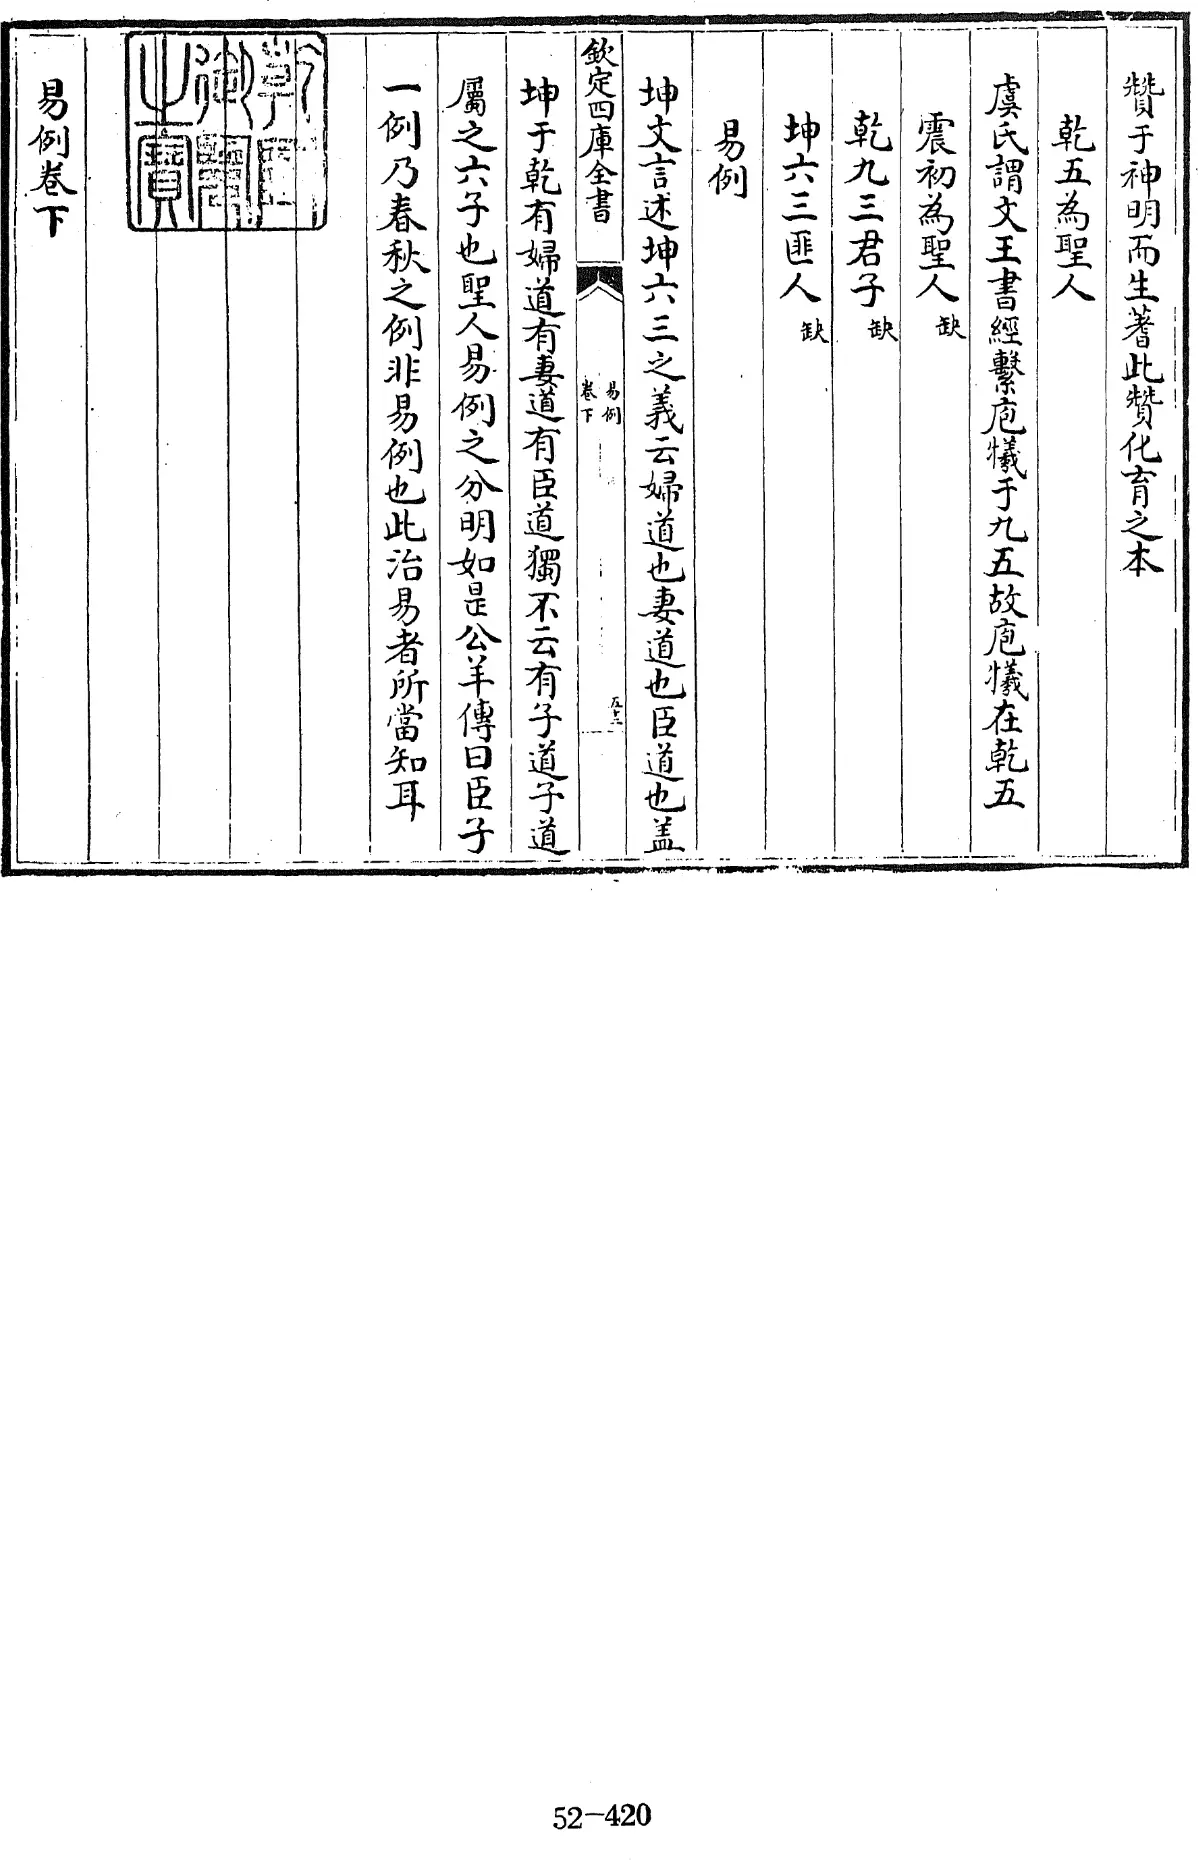 贊于神明而生蓍此贊化育之本
乾五為聖人
虞氏謂文王書經繫庖犧于九五故庖犧在乾五
震初為聖人缺
乾九三君子缺
坤六三匪人缺
易例
坤文言述坤六三之義云婦道也妻道也臣道也盖
欽定四庫全書
易例
卷下
五十二
坤于乾有婦道有妻道有臣道獨不云有子道子道
屬之六子也聖人易例之分明如是公羊傳曰臣子
一例乃春秋之例非易例也此治易者所當知耳
乾隆
御覽
之寶
易例卷下
52-420